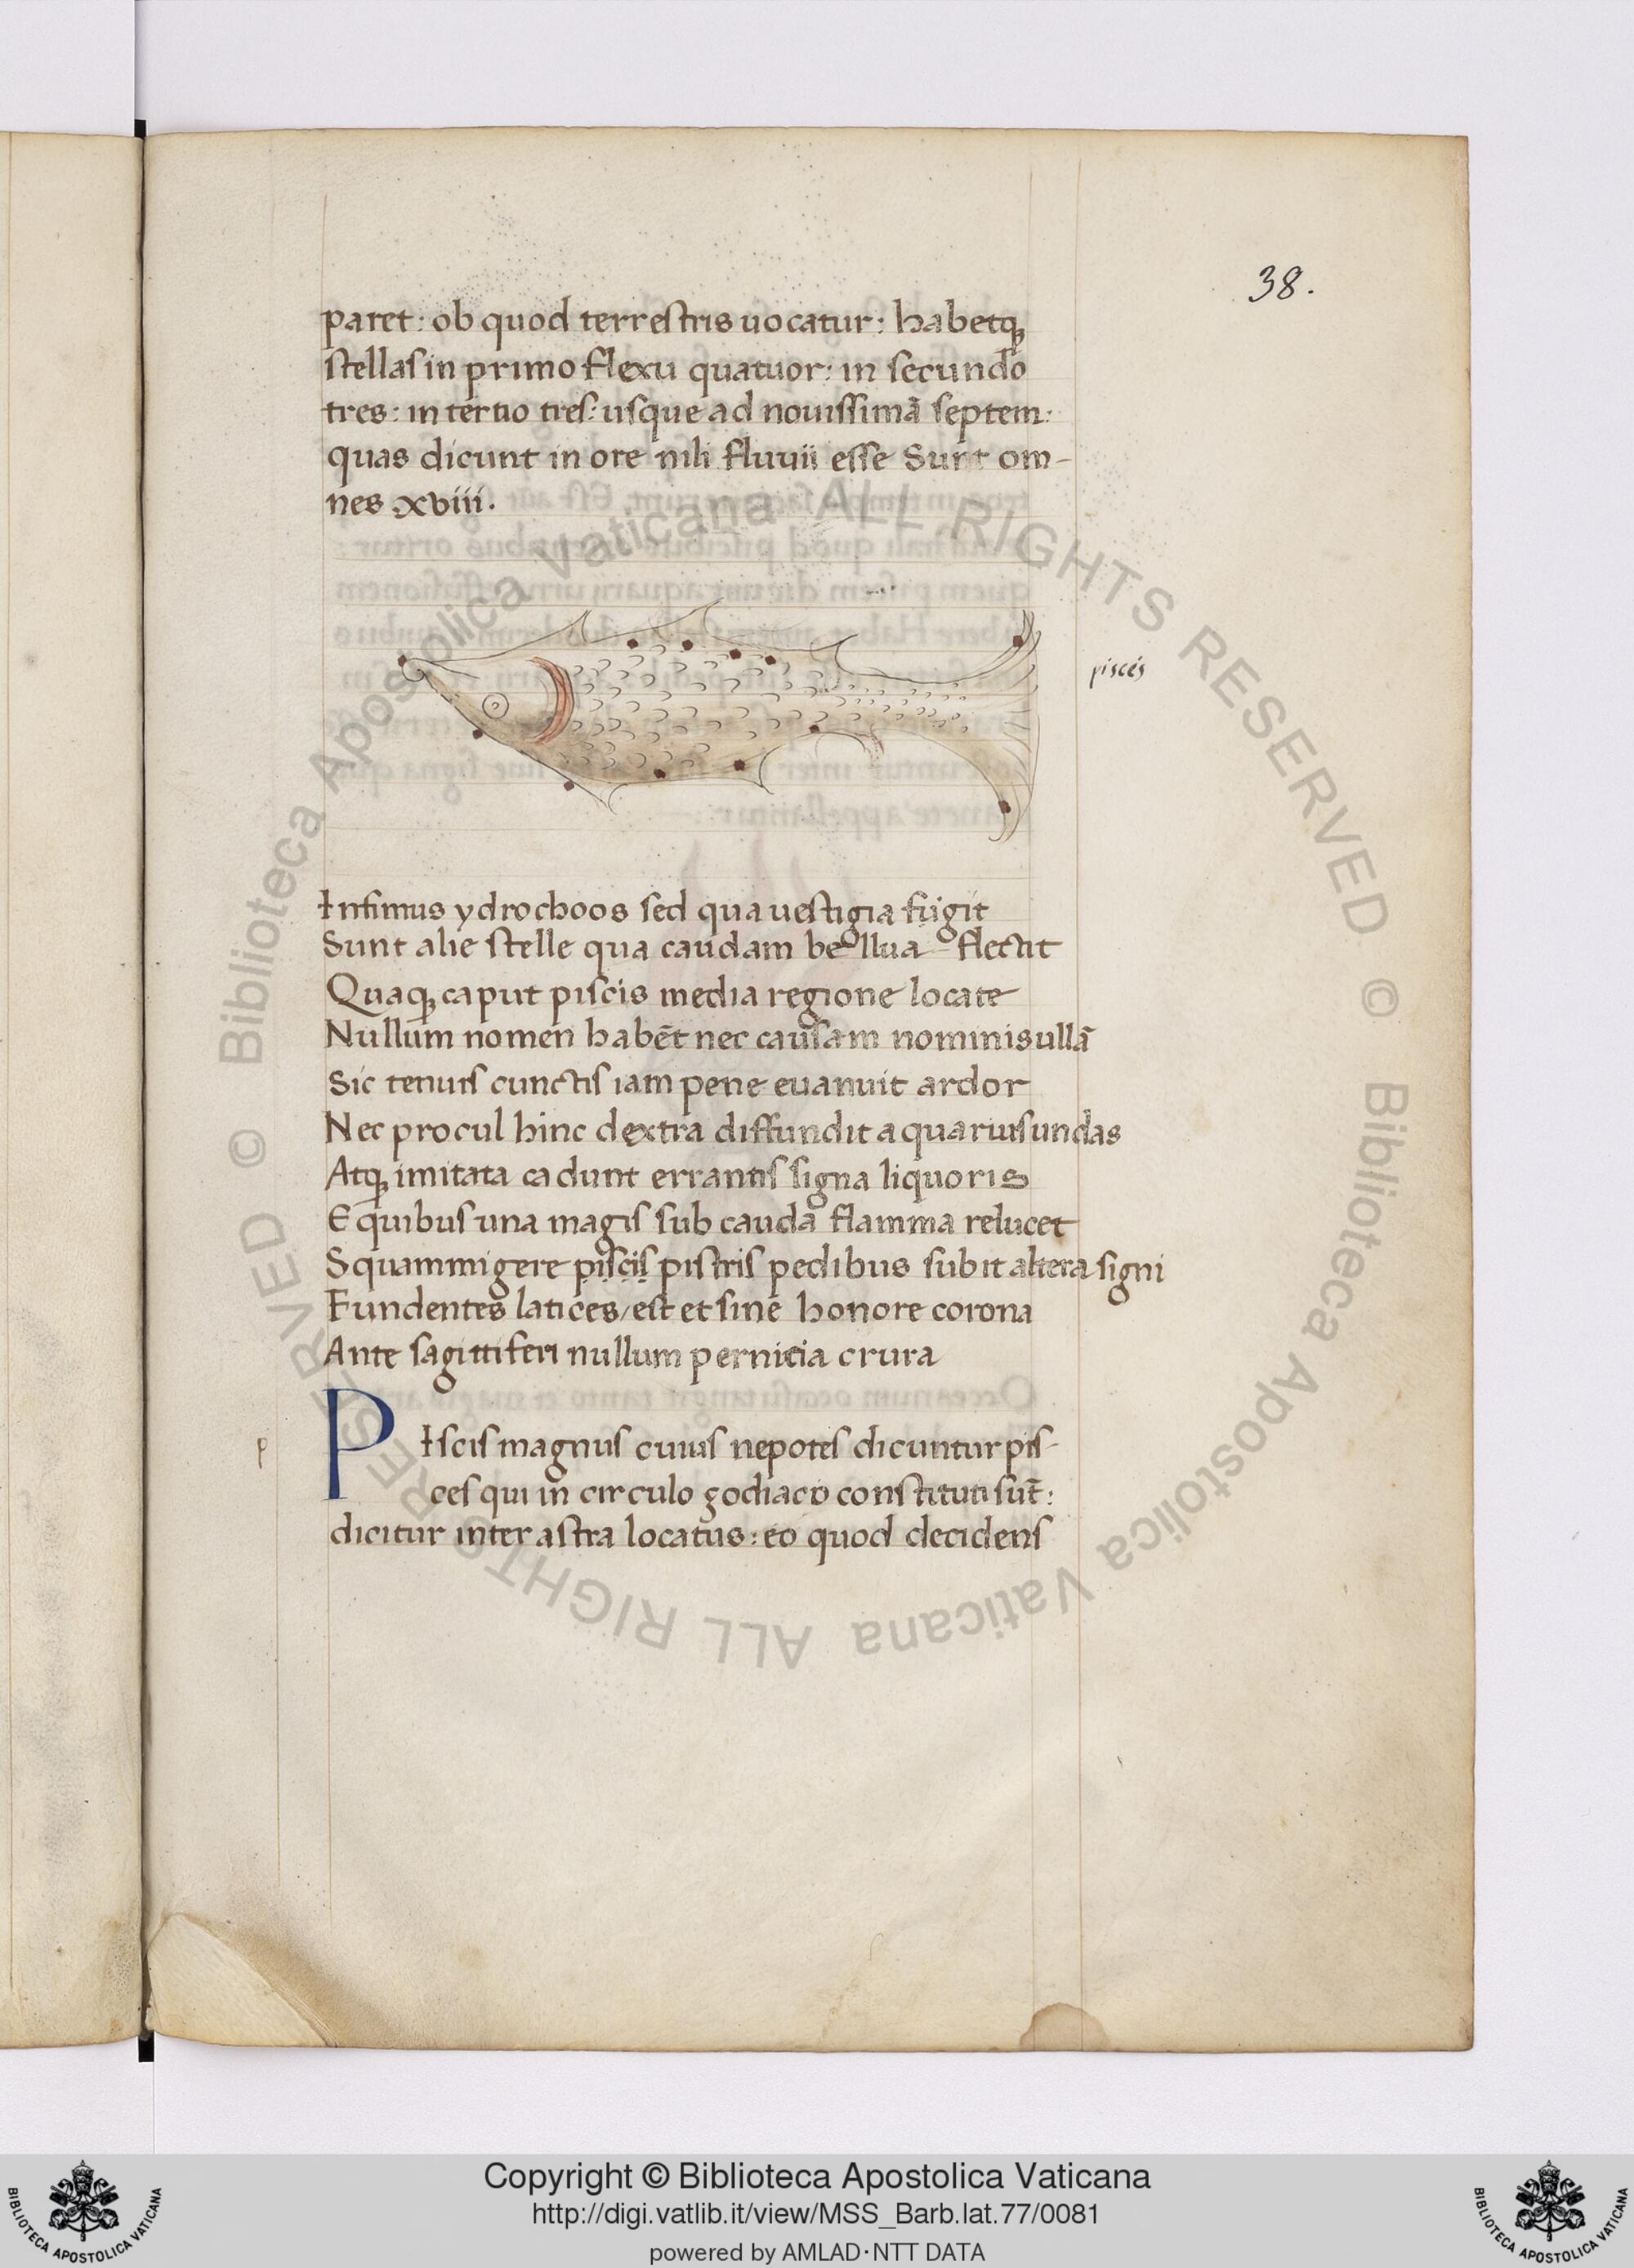 38.
paret: ob quod terrestris uocatur: habetq;
stellas in primo flexu quatuor: in secundo
tres: in tertio tres: usque ad nouissimā septem:
quas dicunt in ore nili fluuii esse Sunt om-
nes xviii.
piscés
Infimus ydrochoos sed qua uestigia fugit
Sunt alie stelle qua caudam bellua flectit
Quaq; caput piscis media regione locate
Nullum nomen habēt nec causam nominis ullā
Sic tenuis cunctis iam pene euanuit ardor
Nec procul hinc dextra diffundit aquarius undas
Atq; imitata cadunt errantis signa liquoris
E quibus una magis sub caudā flamma relucet
Squammigere piscis pistris pedibus subit altera signi
Fundentes latices/est et sine honore corona
Ante sagittiferi nullum pernicia crura
p
PIscis magnus cuius nepotes dicuntur pis-
ces qui in circulo zodiaco constituti sūt:
dicitur inter astra locatus: eo quod decidens
© Biblioteca Apostolica Vaticana ALL RIGHTS RESERVED © Biblioteca Apostolica Vaticana ALL RIGHTS RESERVED
BIBLIOTECA APOSTOLICA VATICANA
Copyright © Biblioteca Apostolica Vaticana
http://digi.vatlib.it/view/MSS_Barb.lat.77/0081
powered by AMLAD·NTT DATA
BIBLIOTECA APOSTOLICA VATICANA